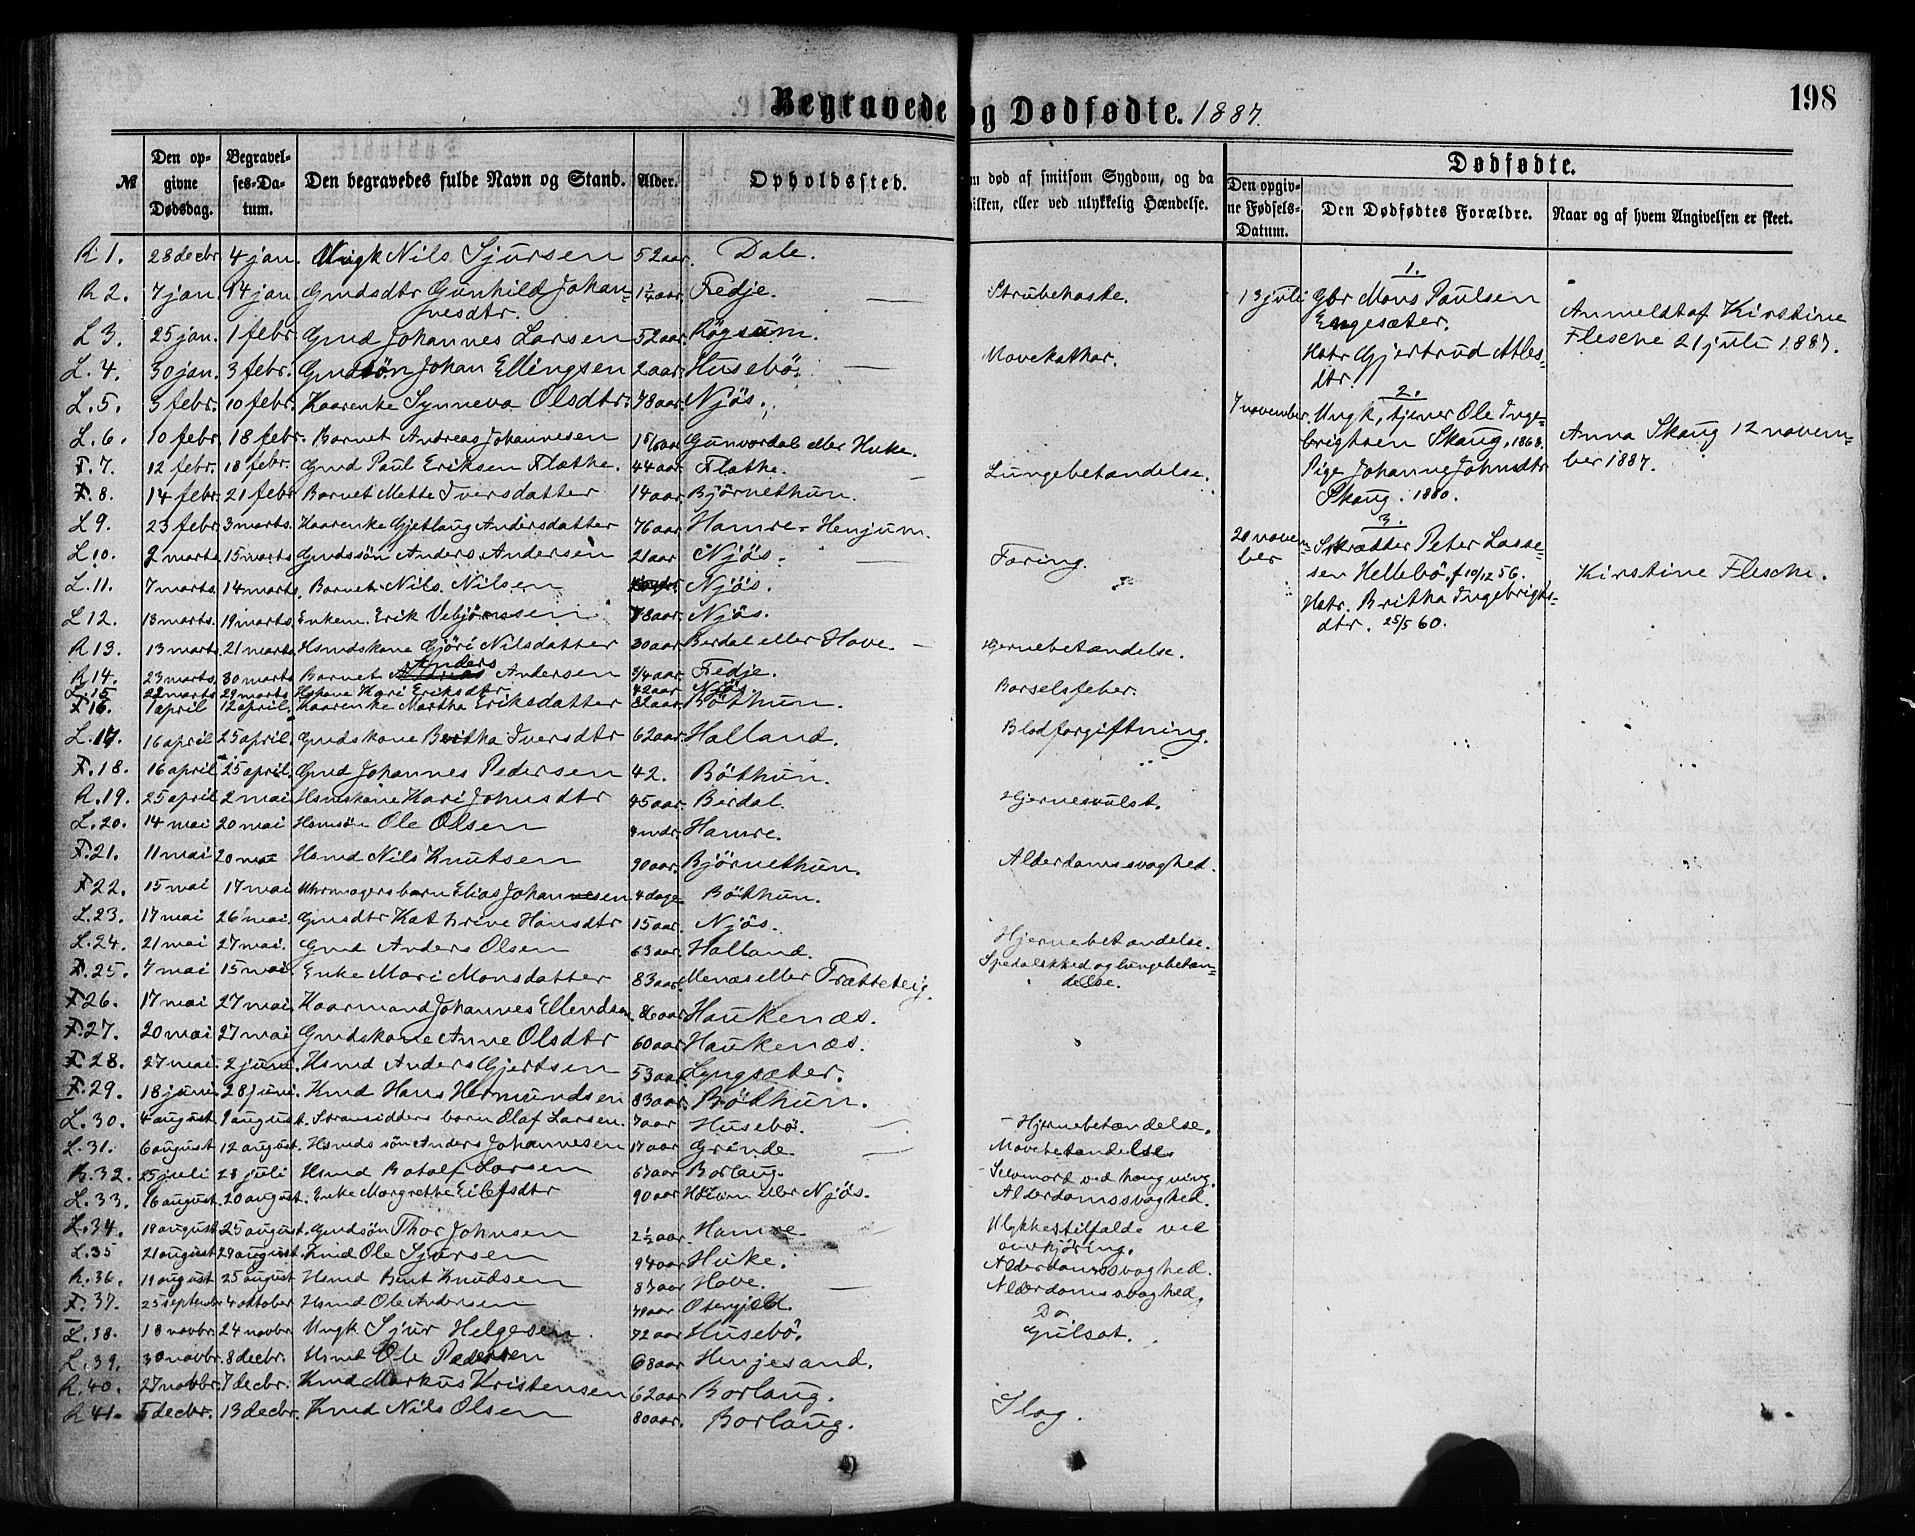 Begravede og Dødfødte. 1887.
198
№ Den opgivne Dødsdag. Begravelses-Datum. Den begravedes fulde Navn og Stand. Alder. Opholdssted.
om død af smitsom Sygdom, og da
hvilken, eller ved ulykkelig Hændelse.
Dødfødte.
Den opgivne Fødsels-Datum. Den Dødfødtes Forældre. Naar og af hvem Angivelsen er skeet.
R 1. 28 decbr 4 jan. Ungk Nils Sjursen 52 aar. Dale.
R 2. 7 jan. 14 jan Gmdsdtr Gunhild Johannesdtr. 1 1/4 aar. Fedje. — Strubehoste.
L 3. 25 jan. 1 febr. Gmd Johannes Larsen 52 aar. Røgsum.
L. 4. 30 jan. 3 febr. Gmdsøn Johan Ellingsen 2 aar. Husebö. — Mavekathar.
L. 5. 3 febr. 10 febr. Kaarenke Synneva Olsdtr. 78 aar. Njös.
L. 6. 10 febr. 18 febr. Barnet Andreas Johannesen Gunvordal eller Huke.
F. 7. 12 febr. 18 febr. Gmd Paul Eriksen Flæthe. 44 aar. Flathe. — Lungebetændelse.
F. 8. 14 febr. 21 febr Barnet Mette Iversdatter 14 aar. Björnethun.
L 9. 23 febr. 3 marts. Kaarenke Gjetlaug Andersdatter 76 aar Hamre - Henjum.
L. 10. 2 marts 15 marts Gmdssön Anders Andersen 21 aar Njös. — Tæring.
L. 11. 7 marts. 14 marts. Barnet Nils Nilsen Njös. "
L 12. 13 marts. 19 marts. Enkem. Erik Vebjörnssen 78 aar. Njös.
R 13. 13 marts. 21 marts. Hsmdskone Gjöri Nilsdatter 30 aar Berdal eller Hove. — Hjernebetændelse.
R 14. 23 marts 30 marts Barnet Anders Andersen 3/4 aar. Fedje.
L. 15 22 marts 29 marts Hskone Kari Eriksdtr 42 aar Njös. Barselsfeber.
F 16. 1 april 12 april. Kaarenke Martha Eriksdatter 82 aar. Böthun.
L. 17. 16 april 25 april. Gmdskone Britha Iversdtr 62 aar. Halland. Blodforgiftning.
F. 18. 16 april 25 april. Gmd Johannes Pedersen 42. Böthun.
R. 19. 25 april 2 mai Hsmskone Kari Johnsdtr 45 aar. Berdal. Hjernesvulst.
L. 20. 14 mai 20 mai Hsmsön Ole Olsen 4 mdr. Hamre.
F. 21. 11 mai 20 mai Hsmd Nils Knutsen 90 aar. Björnethun. Alderdomssvaghed.
F 22. 15 mai 17 mai Uhrmagers barn Elias Johannesen 4 dage Böthun.
L. 23. 17 mai 26 mai. Gmsdtr Kathrine Hansdtr 15 aar. Njös.
L. 24. 21 mai 27 mai. Gmd Anders Olsen 63 aar. Halland. Hjernebetændelse.
F. 25. 7 mai 15 mai. Enke Mari Monsdatter 83 aar. Menæs eller Trætteteig. Spedalskhed og lungebetændelse.
F 26. 17 mai 27 mai. Kaarmand Johannes Ellendsen. 86 aar Haukenæs.
F. 27. 20 mai 27 mai Gmdskone Anne Olsdtr 60 aar Haukenæs.
F 28. 27 mai. 2 juni. Hsmd Anders Gjertsen 53 aar Lyngsæter.
F. 29. 18 juni. 28 juni. Kmd Hans Hermundsen 83 aar. Böthun.
L. 30. 4 august 9 august. Strandsidders barn Olaf Larsen. 7 aar Husebö. — Hjernebetændelse.
L. 31. 6 august 12 august. Hsmds sön Anders Johannesen 17 aar Grinde — Mavebetændelse
R. 32. 25 juli 28 juli Hsmd Botolf Larsen 67 aar Borlaug. Selvmord ved hængning.
L. 33. 16 august. 20 august. Enke Margrethe Eilefsdtr 90 aar Höium eller Njös. Alderdomssvaghed.
L. 34. 19 august 25 august. Gmdsön Thor Johnsen 2 1/2 aar. Hamre Ulykkestilfælde ved
omkjöring.
L. 35 21 august 29 august. Kmd Ole Sjursen 94 aar Huke. Alderdomssvaghed.
R. 36. 19 august 25 august Hsmd Bent Knudsen 87 aar Hove. Alderdomssvaghed.
F. 37. 25 septembr 4 oktober Hsmd Ole Andersen 79 aar Otergjeld. Do
L. 38. 18 novbr. 24 novbr Ungk Sjur Helgesen. 72 aar Husebö. Gulsot.
L. 39. 30 novbr. 8 decbr. Hsmd Ole Pedersen 68 aar Henjesand.
R. 40. 27 novbr. 7 decbr. Kmd Markus Kristensen 62 aar Borlaug.
R 41. 5 decbr. 13 decbr. Kmd Nils Olsen 80 aar. Borlaug. Slag.
1.
13 juli Gbr Mons Paulsen
Engesæter.
Hstr Gjertrud Atlesdtr.
Anmeldt af Kirstine
Flesche 21 juli 1887.
2.
7 november. Ungk, tjener Ole Ingebrigtsen Skaug. 1868.
Pige Johanne Johnsdtr
Skaug. 1860.
Anna Skaug 12 november 1887.
3.
20 november Skrædder Peter Lassesen Hellebö, f 10/12 56.
Hstr. Britha Ingebrigtsdtr. 25/5 60.
Kirstine Flesche.